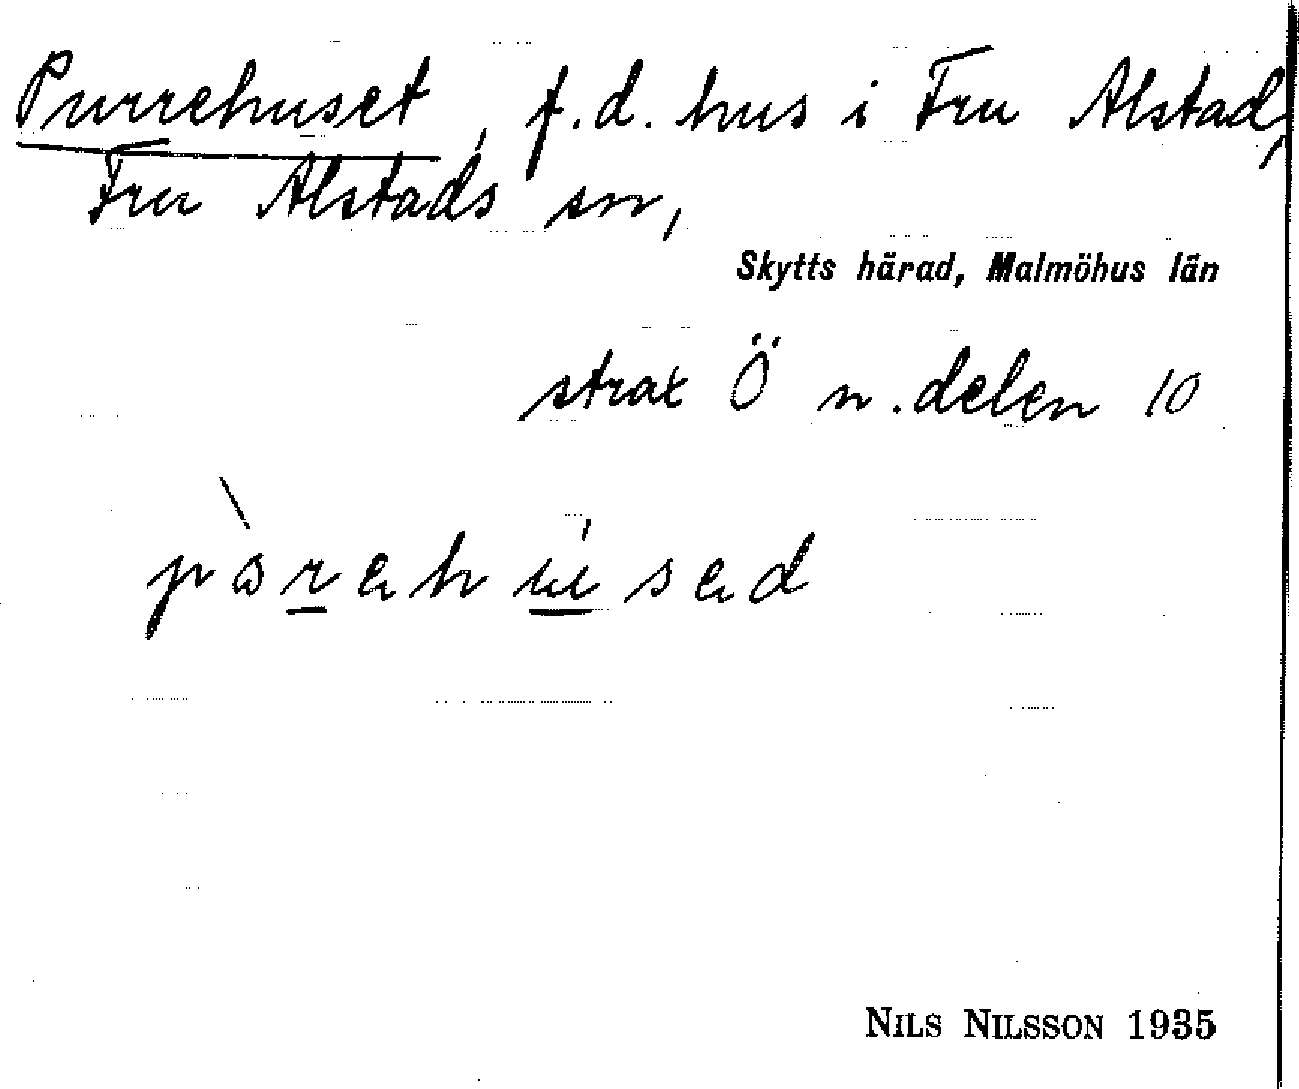 Purrehuset, f.d. hus i Fru Alstad,
Fru Alstads sn,
Skytts härad, Malmöhus län
strax Ö n.delen 10
NILS NILSSON 1935